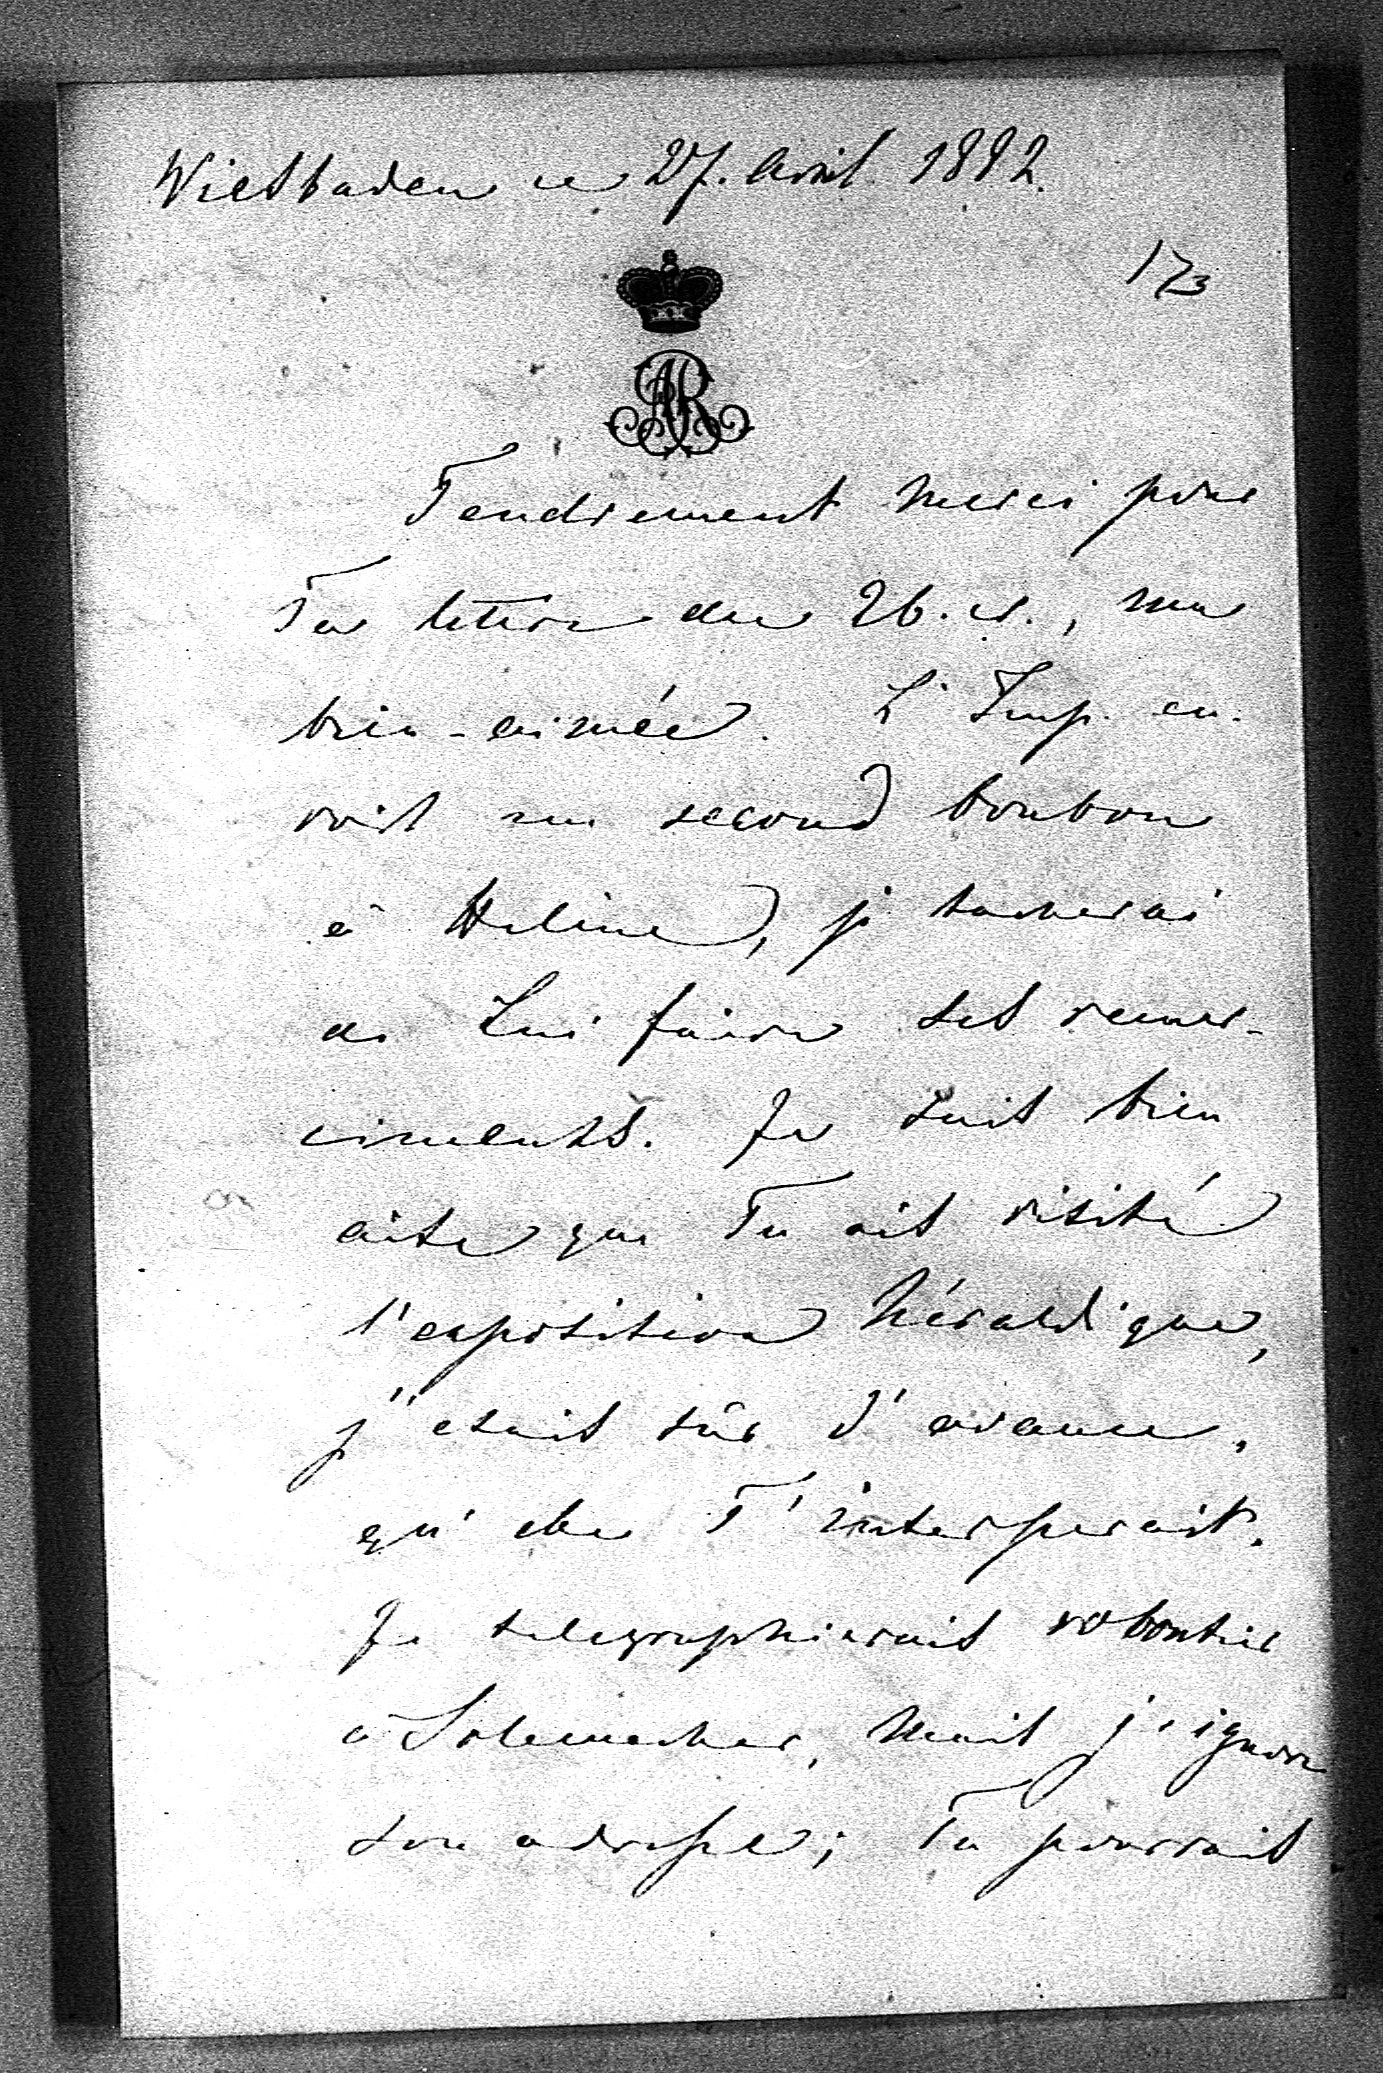 Wiesbaden ce 27. Avril 1882.
173
AR
Tendrement merci pour
Ta lettre du 26. ct., ma
bien-aimée. L'Imp. en-
voit un second bonbon
à Helène, je tacherai
de Lui faire tes remer-
ciments. Je suis bien
aise que Tu ais visité
l'exposition héraldique,
j'etais sûr d'avance,
qu'elle T'interesserait.
Je telegraphierais volontier
à Solemacher, mais j'ignore
son adresse; Tu pourrais